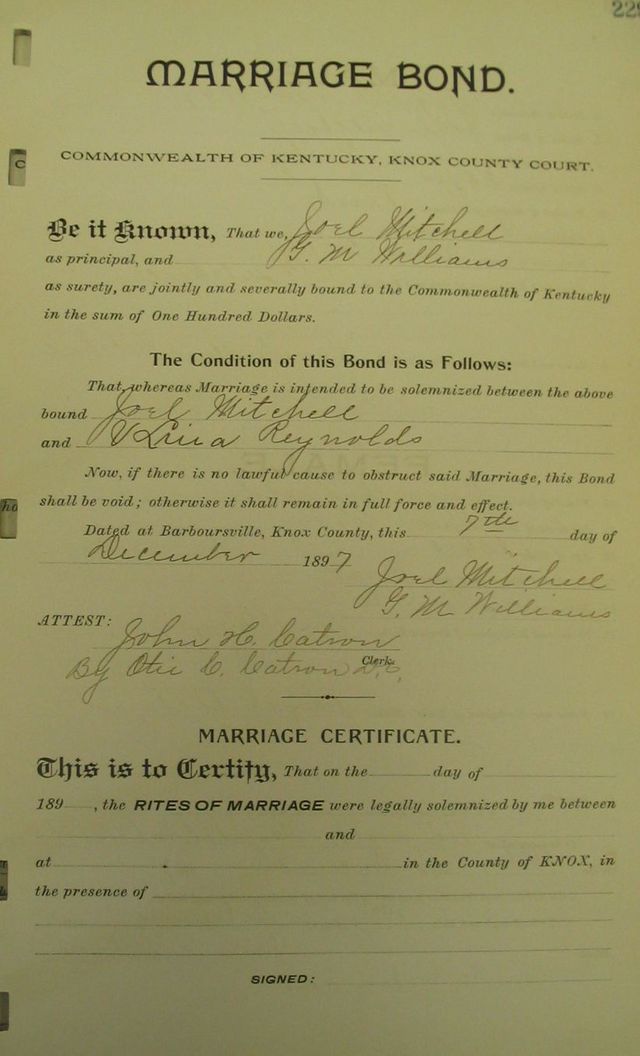 229
MARRIAGE BOND.
COMMONWEALTH OF KENTUCKY, KNOX COUNTY COURT.
Be it Known, That we, Joel Mitchell
as principal, and G. M Williams
as surety, are jointly and severally bound to the Commonwealth of Kentucky
in the sum of One Hundred Dollars.
The Condition of this Bond is as Follows:
That, whereas Marriage is intended to be solemnized between the above
bound Joel Mitchell
and Reynolds
Now, if there is no lawful cause to obstruct said Marriage, this Bond
shall be void; otherwise it shall remain in full force and effect.
Dated at Barboursville, Knox County, this 7th day of
December 1897
Joel Mitchell
G. M Williams
ATTEST:
John H. Catron
Clerk.
By Otis C. Catron D.C.
MARRIAGE CERTIFICATE.
This is to Certify, That on the day of
189 , the RITES OF MARRIAGE were legally solemnized by me between
and
at in the County of KNOX, in
the presence of
SIGNED: